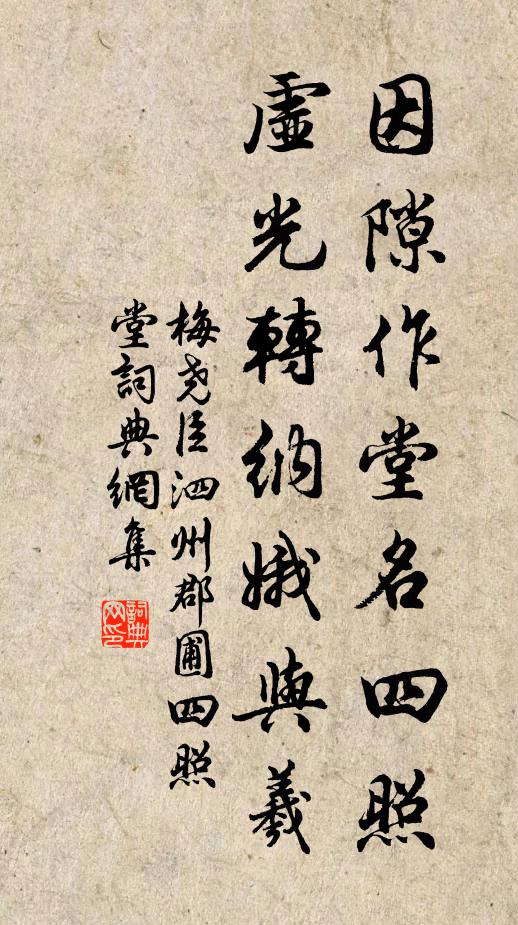 因隙作堂名四照
虛光轉納娥與羲
梅堯臣泗州郡圃四照
堂詞典網集
詞典
网印